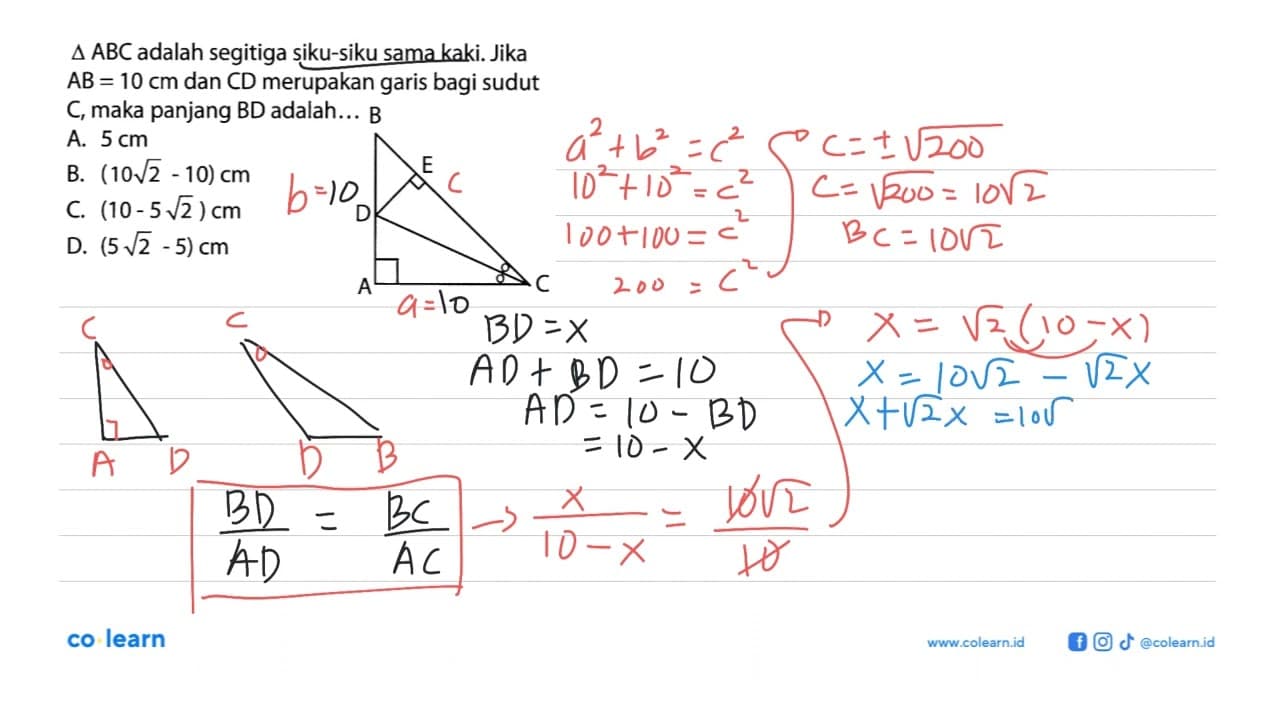 Δ ABC adalah segitiga siku-siku sama kaki. Jika
AB = 10 cm dan CD merupakan garis bagi sudut
C, maka panjang BD adalah...
A. 5 cm
B. (10√2 - 10) cm
C. (10 - 5√2) cm
D. (5√2 - 5) cm
B
E
C
b=10
D
A
C
a=10
a² + b² = c²
10² + 10² = c²
100 + 100 = c²
200 = c²
C = ± √200
C = √200 = 10√2
BC = 10√2
C
A
D
C
D
B
BD = x
AD + BD = 10
AD = 10 - BD
= 10 - x
BD/AD = BC/AC → x/10-x = 10√2/10
x = √2 (10 - x)
x = 10√2 - √2x
x + √2x = 10√
co learn
www.colearn.id
@colearn.id